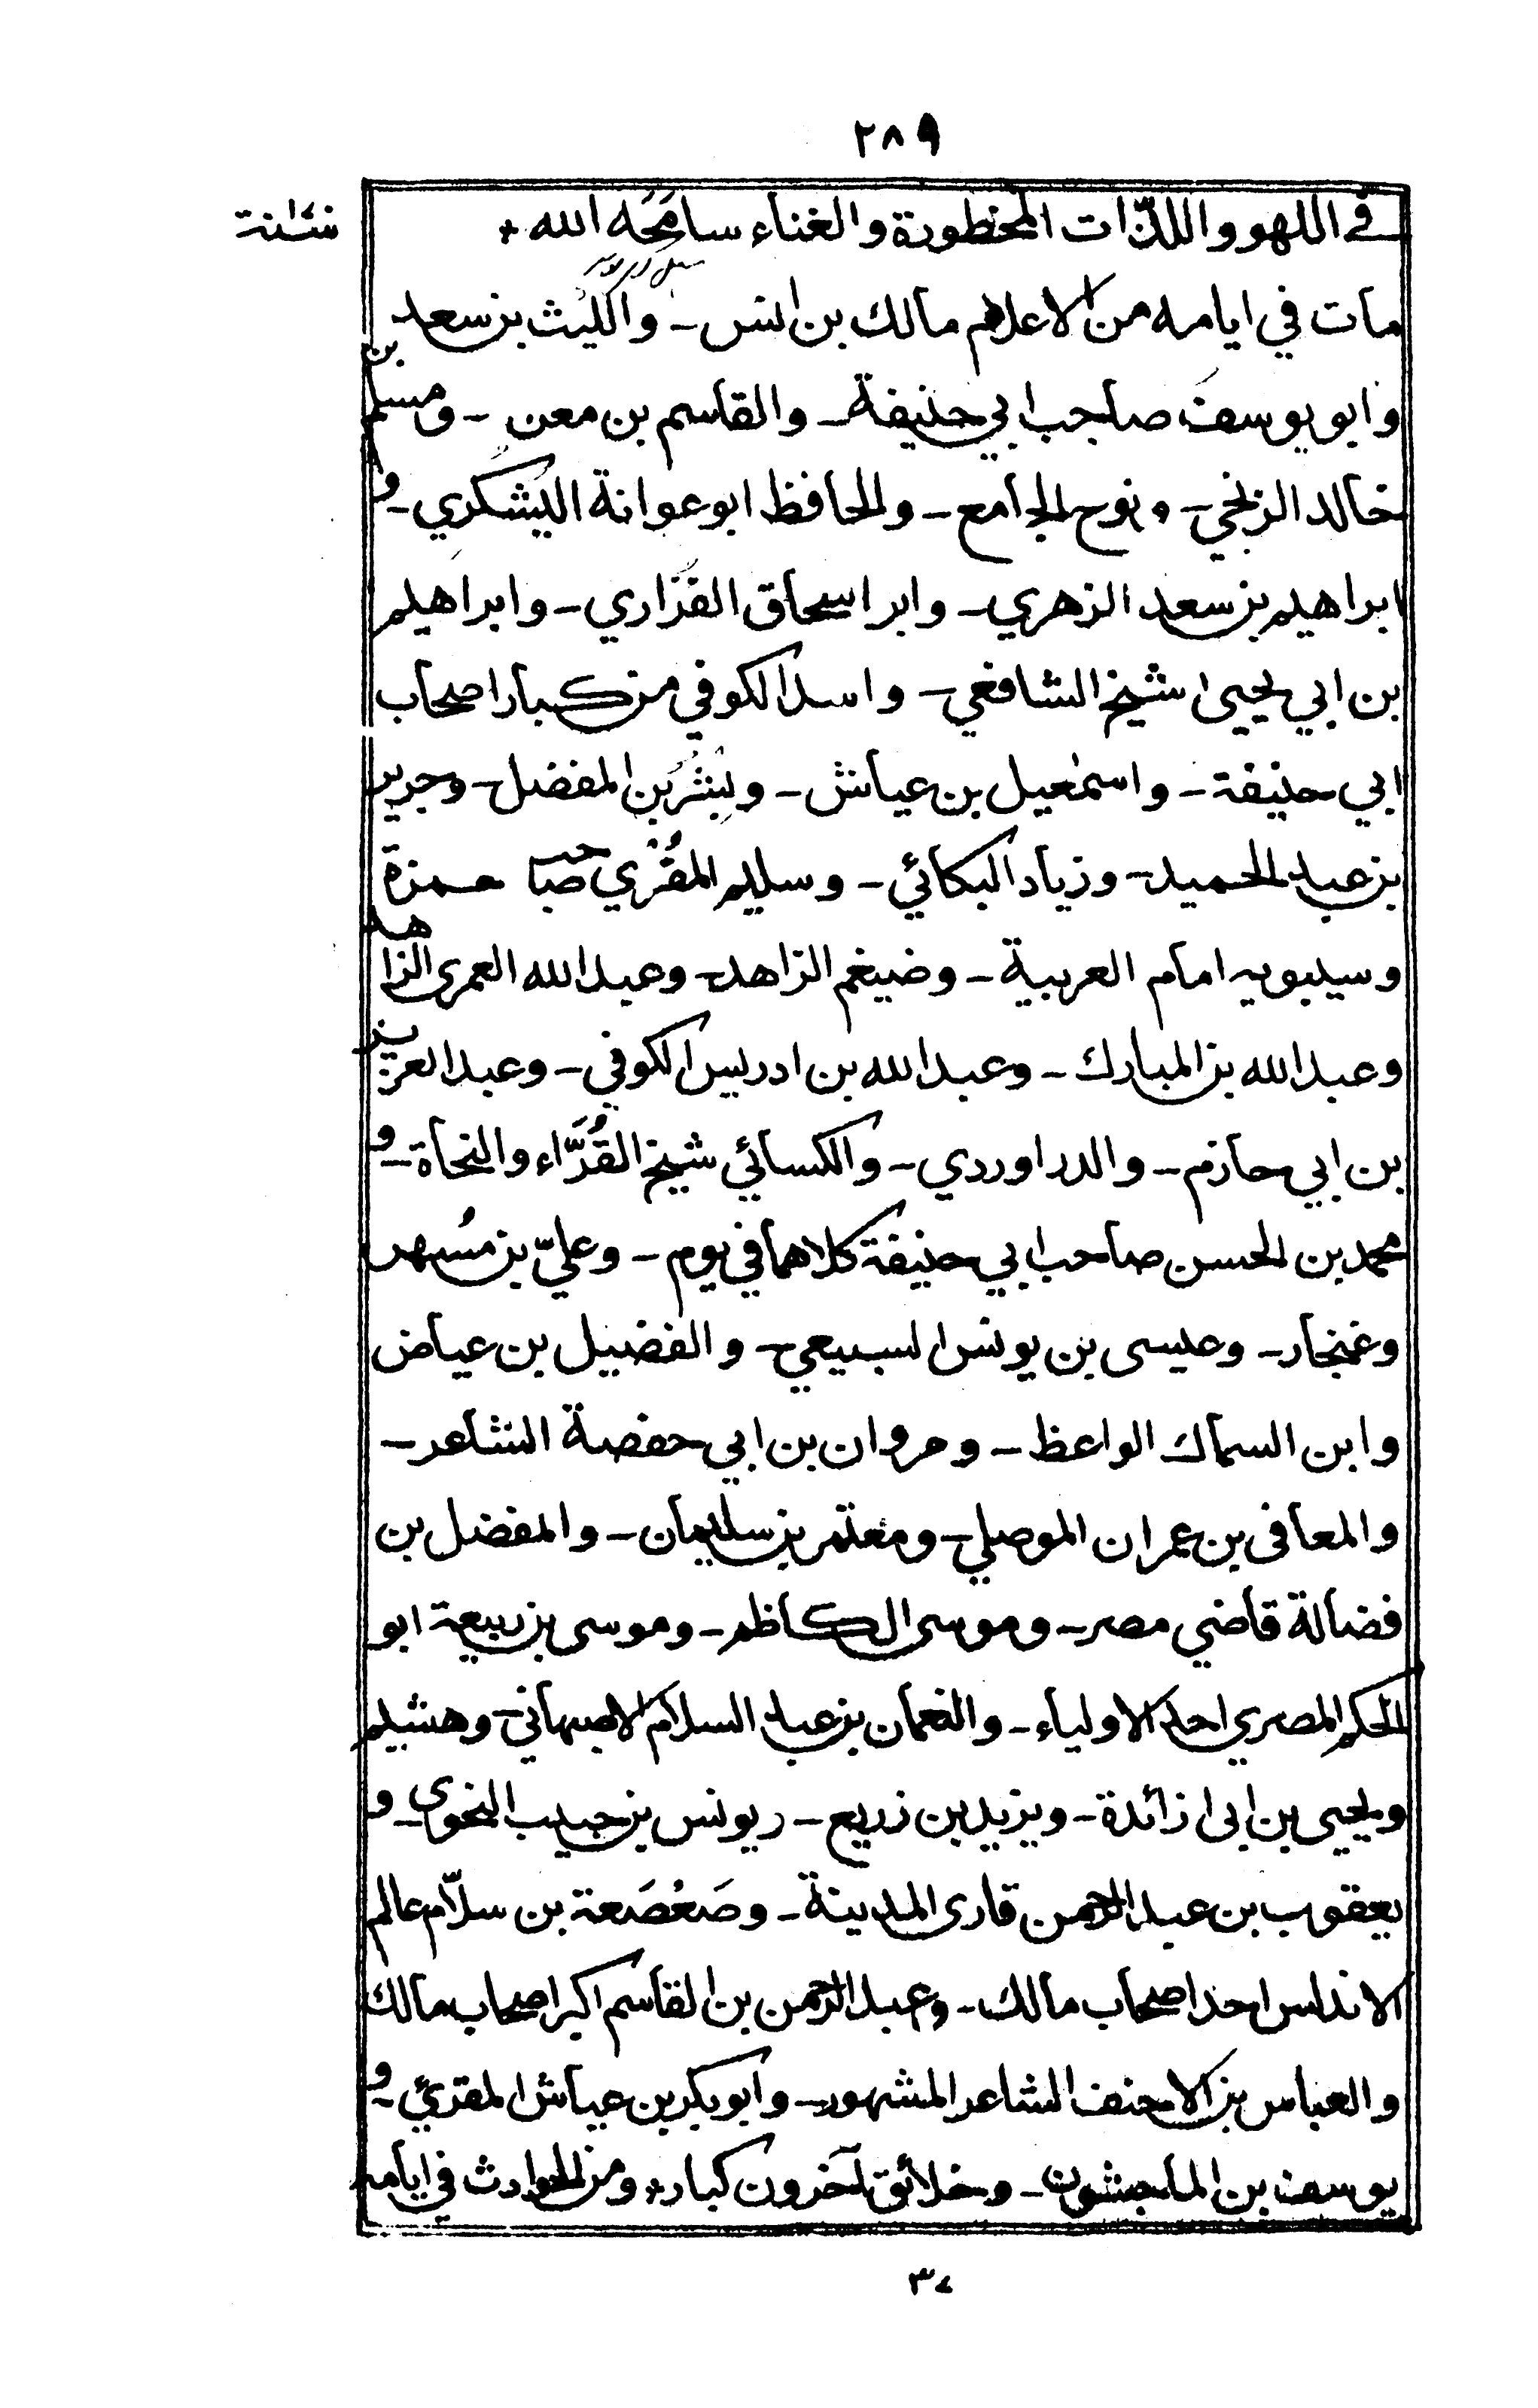 ٢٨٩
في اللهو واللذّات المحظورة والغناء سامَحَه الله ٭
مات في ايامه من الاعلام مالك بن انس - والليث بن سعد
وابو يوسف صاحب ابي حنيفة - والقاسم بن معن - ومسلم بن
خالد الزنجي - ونوح الجامع - والحافظ ابو عوانة اليشكري - و
ابراهيم بن سعد الزهري - وابو اسحاق الفزاري - وابراهيم
بن ابي يحيى شيخ الشافعي - واسد الكوفي من كبار اصحاب
ابي حنيفة - واسمٰعيل بن عياش - وبشر بن المفضل - وجرير
بن عبد الحميد - وزياد البكائي - وسليم المقري صاحب حمزة
وسيبويه امام العربية - وضيغم الزاهد - وعبد الله العمري الزاهد
وعبد الله بن المبارك - وعبد الله بن ادريس الكوفي - وعبد العزيز
بن ابي حازم - والدراوردي - والكسائي شيخ القُرَّاء والنحاة - و
محمد بن الحسن صاحب ابي حنيفة كلاهما في يوم - وعليّ بن مُسهر
وغنجار - وعيسى بن يونس السبيعي - والفضيل بن عياض
وابن السماك الواعظ - ومروان بن ابي حفصة الشاعر -
والمعافى بن عمران الموصلي - ومعتمر بن سليمان - والمفضل بن
فضالة قاضي مصر - وموسى الكاظم - وموسى بن ربيعة ابو
الحكم المصري احد الاولياء - والنعمان بن عبد السلام الاصبهاني - وهشيم
ويحيى بن ابى زائدة - ويزيد بن زريع - ويونس بن حبيب النحوى - و
يعقوب بن عبد الرحمن قارى المدينة - وصَعْصَعة بن سلّام عالم
الاندلس احد اصحاب مالك - وعبد الرحمن بن القاسم اكبر اصحاب مالك
والعباس بن الاحنف الشاعر المشهور - وابو بكر بن عياش المقرئ - و
يوسف بن الماجشون - وخلائق آخرون كبار ٭ ومن الحوادث في ايامه
٣٧